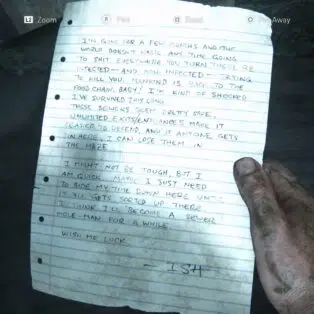 L2 Zoom R Pan Read Put Away
I'M GONE FOR A FEW MONTHS AND THE
WORLD DOESN'T WASTE ANY TIME GOING
TO SHIT. EVERYWHERE YOU TURN THERE'RE
INFECTED—AND NON-INFECTED—TRYING
TO KILL YOU. MANKIND IS BACK TO THE
FOOD CHAIN, BABY! I'M KIND OF SHOCKED
I'VE SURVIVED THIS LONG
THESE SEWERS SEEM PRETTY SAFE.
EXITS/ENTRANCES MAKE IT
EASIER TO DEFEND, AND IF ANYONE GETS
IN HERE, I CAN LOSE THEM IN
THE MAZE
I MIGHT NOT BE TOUGH, BUT I
AM QUICK. MAYBE I JUST NEED
TO BIDE MY TIME DOWN HERE UNTIL
GETS SORTED UP THERE
BECOME A SEWER
MOLE-MAN FOR A WHILE
WISH ME LUCK
— ISH